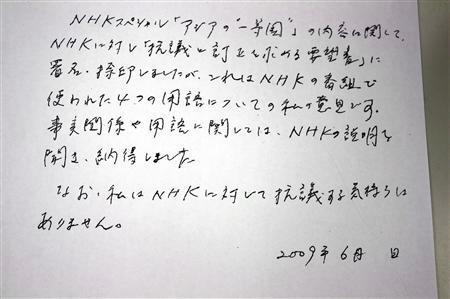 NHKスペシャル「アジアの“一等国”」の内容に関して、
NHKに対し「抗議と訂正を求める要望書」に
署名・捺印しましたが、これはNHKの番組で
使われた4つの用語についての私の意見です。
事実関係や用語に関しては、NHKの説明を
聞き、納得しました
なお、私はNHKに対して抗議する気持ちは
ありません。
2009年 6月 日